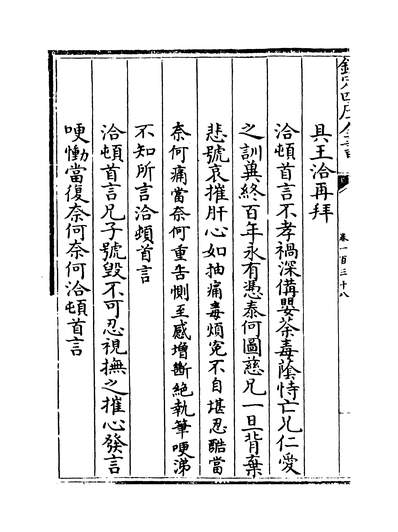 欽定四庫全書
卷一百三十八
具王洽再拜
洽頓首言不孝禍深備嬰荼毒蔭恃亡兄仁愛
之訓兾終百年永有憑奉何圖慈兄一旦背棄
悲號哀摧肝心如抽痛毒煩冤不自堪忍酷當
奈何痛當奈何重告惻至感增斷絶執筆哽涕
不知所言洽頓首言
洽頓首言兄子號毀不可忍視撫之摧心發言
哽慟當復奈何奈何洽頓首言